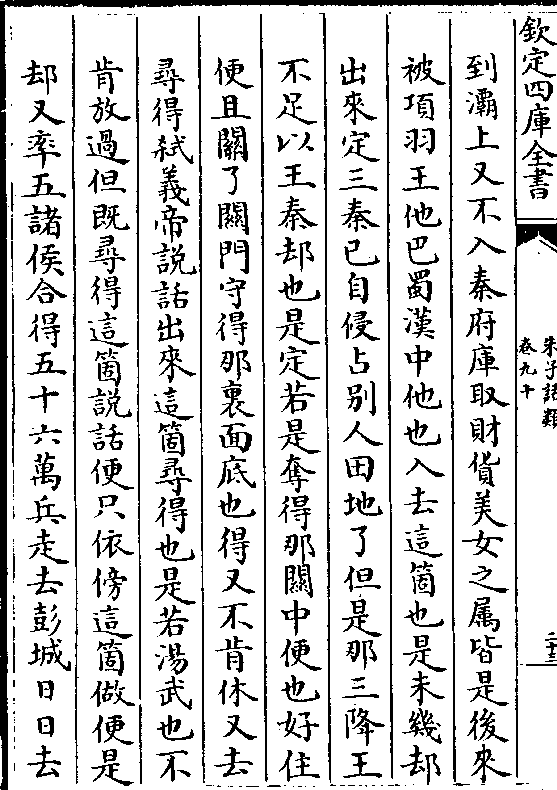 欽定四庫全書
朱子語類
卷九十
二十三
到灞上又不入秦府庫取財貨美女之属皆是後來
被項羽王他巴蜀漢中他也入去這箇也是未幾却
出來定三秦已自侵占别人田地了但是那三降王
不足以王秦却也是定若是奪得那關中便也好住
便且關了關門守得那裏面底也得又不肯休又去
尋得弑義帝說話出來這箇尋得也是若湯武也不
肯放過但既尋得這箇說話便只依傍這箇做便是
却又率五諸侯合得五十六萬兵走去彭城日日去